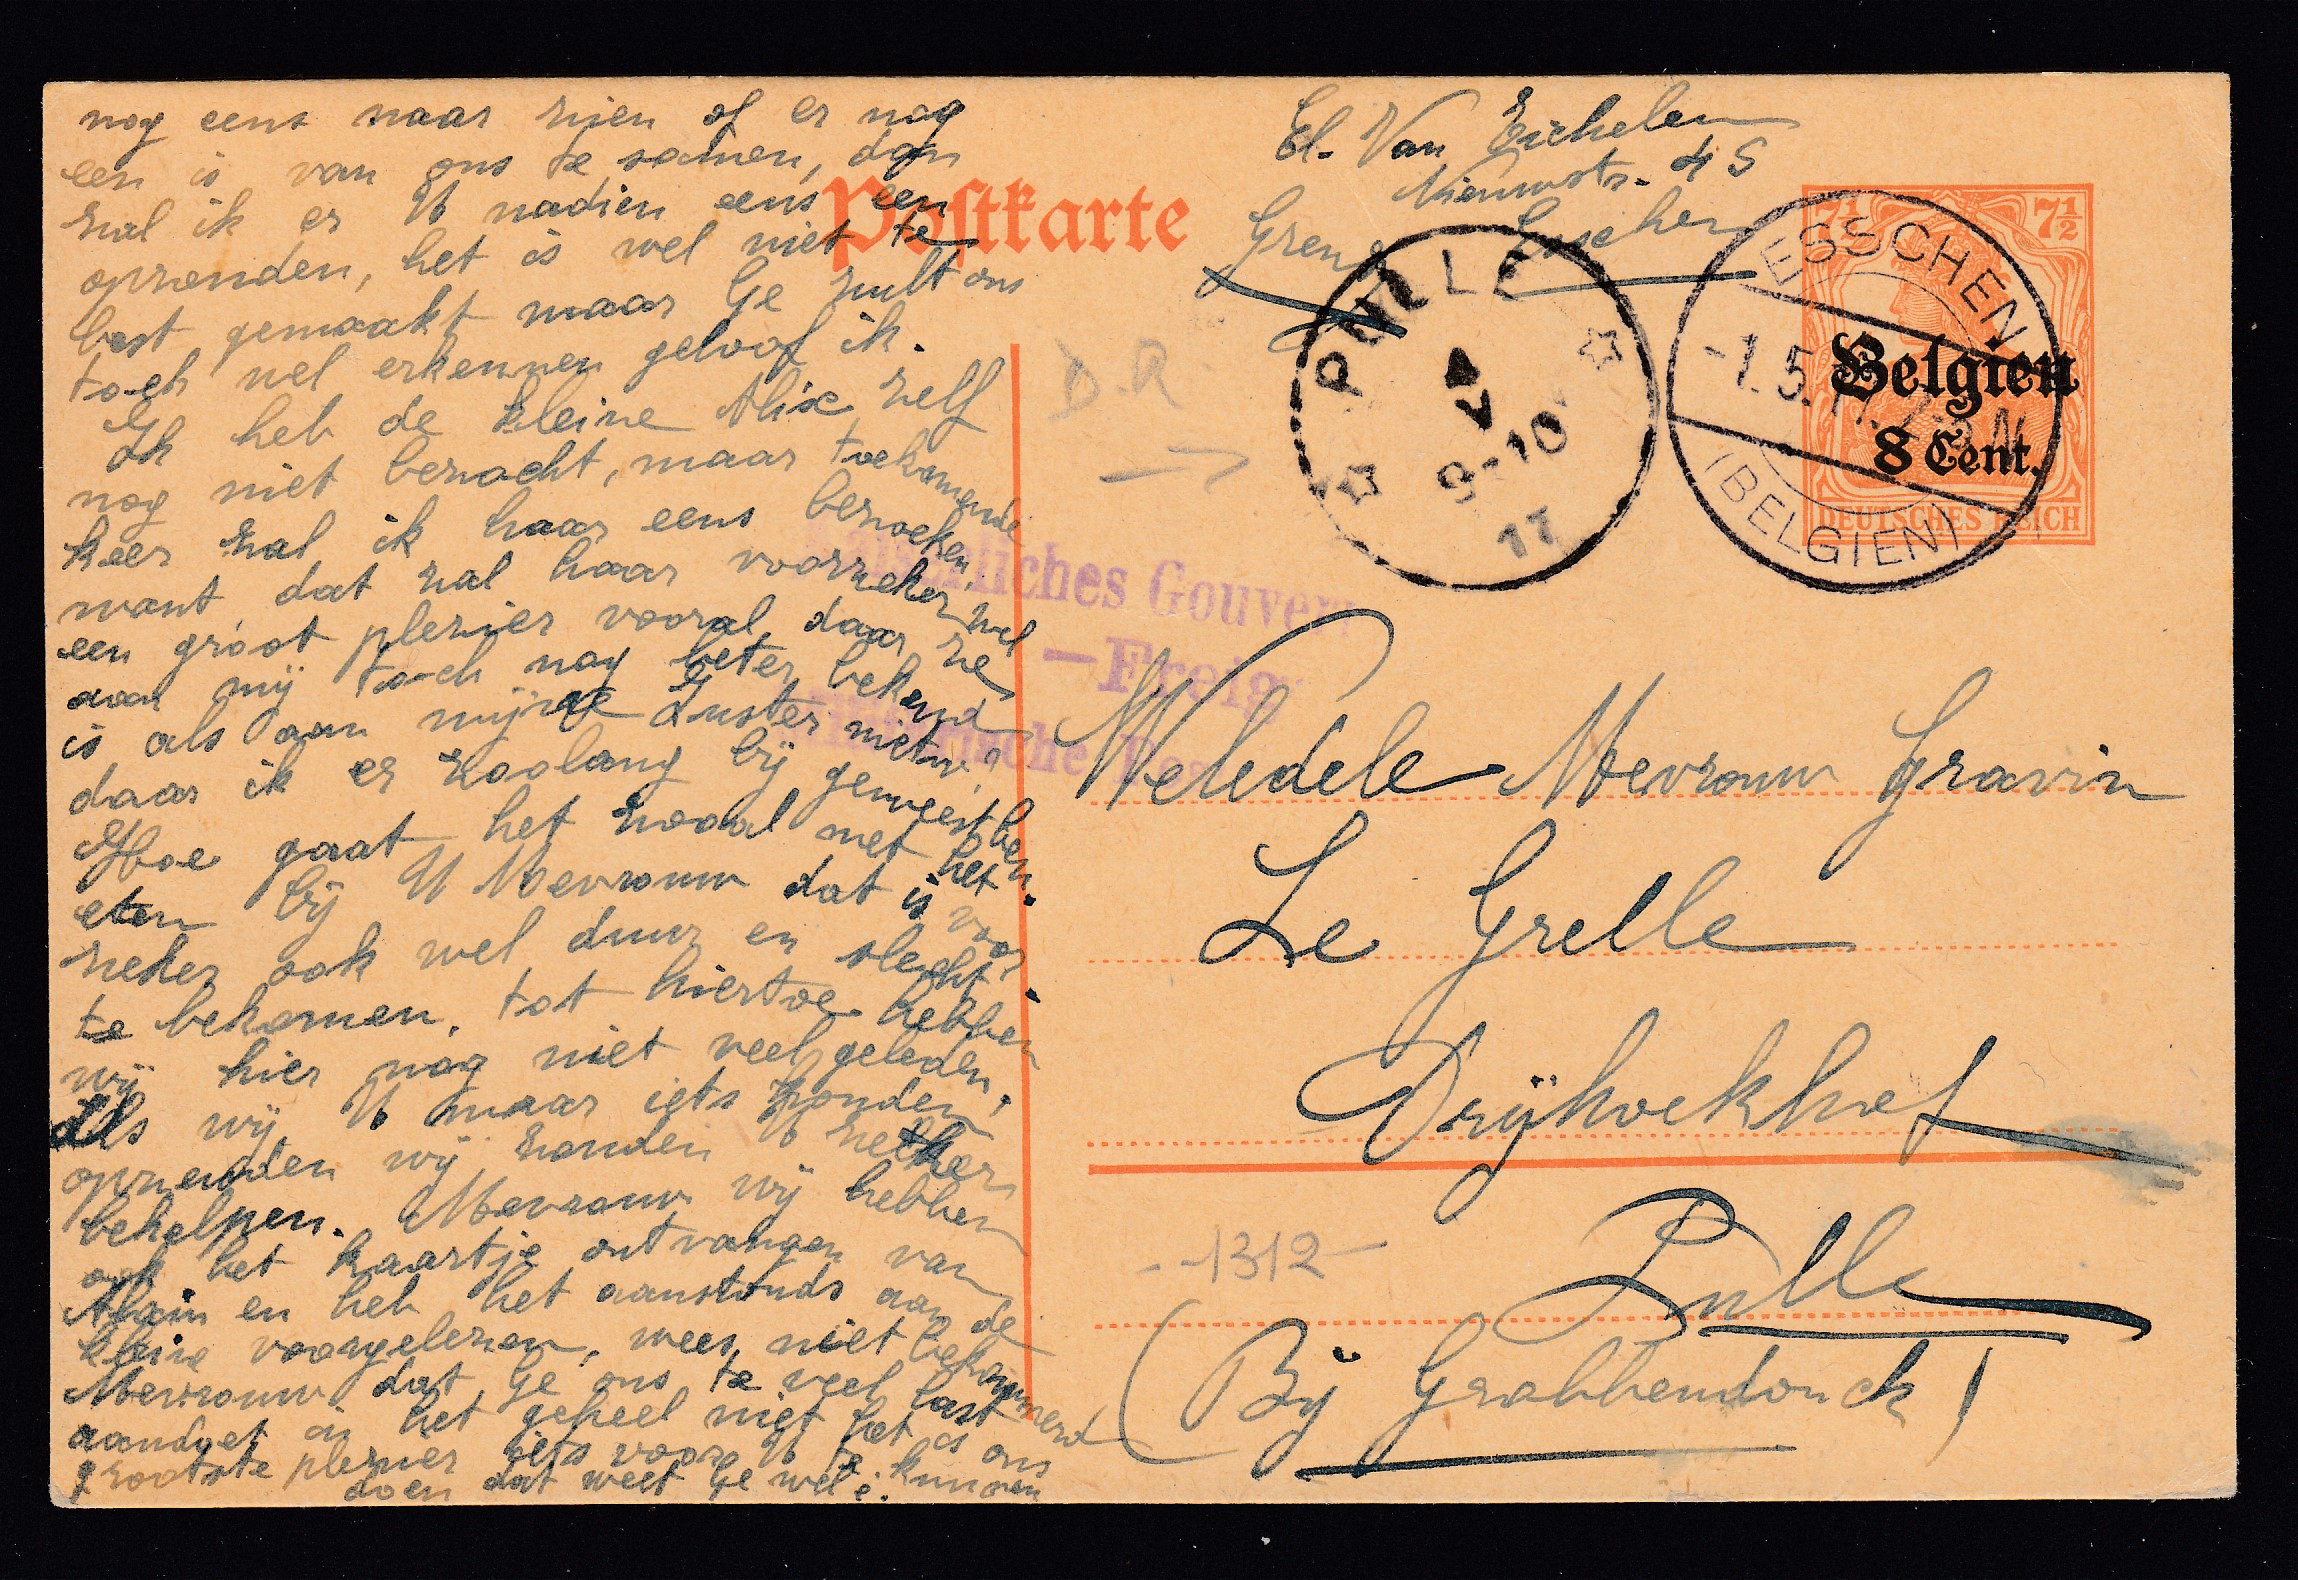 nog eens naar zien of er nog
een is van ons te samen, dan
zal ik er U nadien eens een
opzenden, het is wel niet te
best gemaakt maar Ge zult ons
toch wel erkennen geloof ik.
Ik heb de kleine Alix zelf
nog niet bezocht, maar toekomende
keer zal ik haar eens bezoeken,
want dat zal haar voorzeker wel
een groot plezier vooral daar ze
aan mij toch nog beter bekend
is als aan mijne Zuster
daar ik er zoolang bij geweest ben.
Hoe gaat het zooal met het
eten bij U Mevrouw dat is voor
zeker ook wel duur en slecht
te bekomen. tot hiertoe hebben
wij hier nog niet veel geleden,
Als wij U maar iets konden
opzenden wij zouden U zeker
behelpen. Mevrouw wij hebben
ook het kaartje ontvangen van
Alain en heb het aanstonds aan de
kleine voorgelezen, wees niet bekommerd
Mevrouw dat Ge ons te veel last
aandoet in het geheel niet het is ons
grootste plezier iets voor U te kunnen
doen dat weet Ge wel.
Postkarte
El. Van Eichelen
Nieuwstr. 45
Esschen
D.R
PULLE
V
9-10
17
ESSCHEN
-1.5.17.
(BELGIEN)
7½ 7½
Belgien
8 Cent.
DEUTSCHES REICH
Kaiserliches Gouver
—Freig
Weledele Mevrouw Gravin
Le Grelle
Drijhoekhof
Pulle
-1312-
(Bij Grobbendonck)